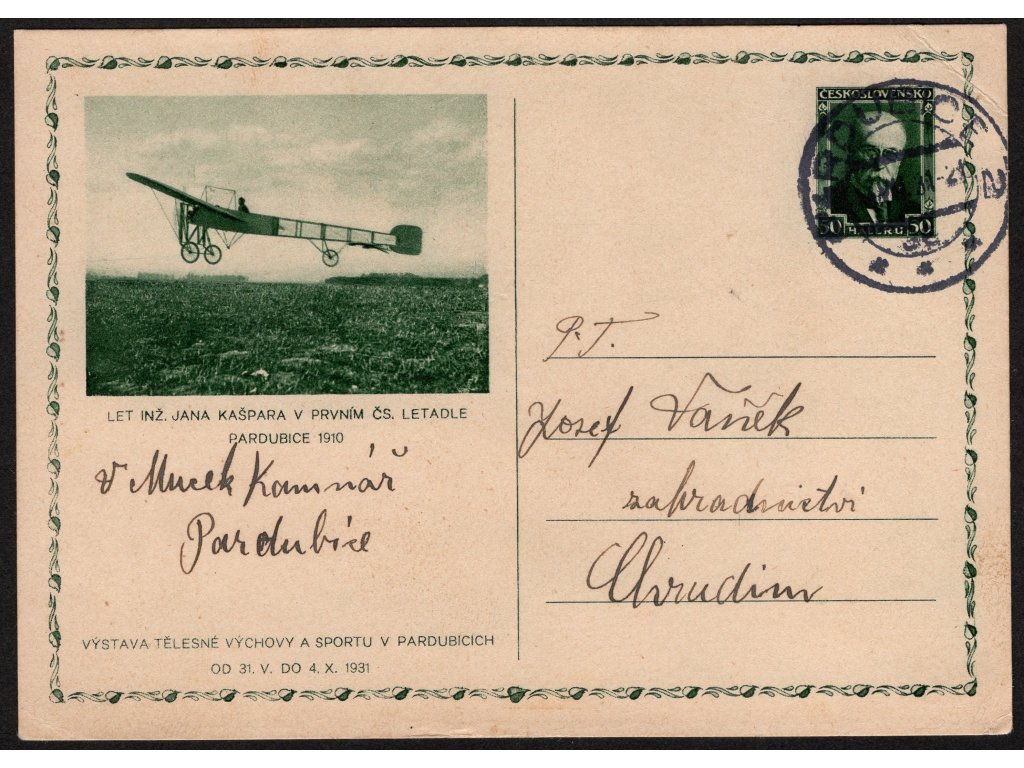 ČESKOSLOVENSKO
50 HALÉŘŮ 50
PARDUBICE 2
LET INŽ. JANA KAŠPARA V PRVNÍM ČS. LETADLE
PARDUBICE 1910
V Mucek Kamnář
Pardubice
P. T.
Josef Vaněk
zahradnictví
Chrudim
VÝSTAVA TĚLESNÉ VÝCHOVY A SPORTU V PARDUBICÍCH
OD 31. V. DO 4. X. 1931